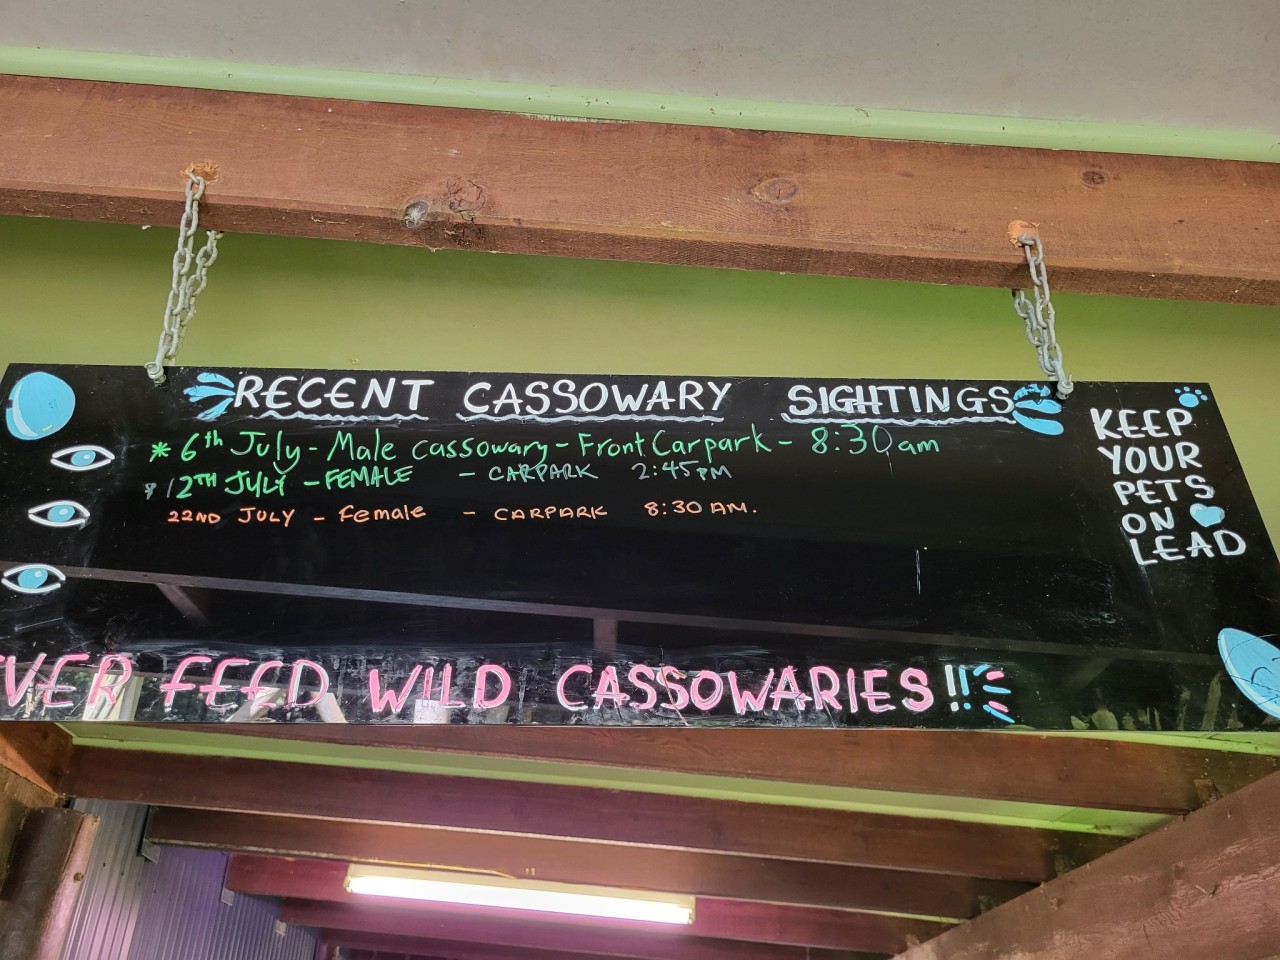 RECENT CASSOWARY SIGHTINGS
* 6th July - Male cassowary - Front Carpark - 8:30am
12TH JULY - FEMALE - CARPARK 2:45PM
22ND JULY - female - CARPARK 8:30 AM.
KEEP
YOUR
PETS
ON
LEAD
VER FEED WILD CASSOWARIES!!